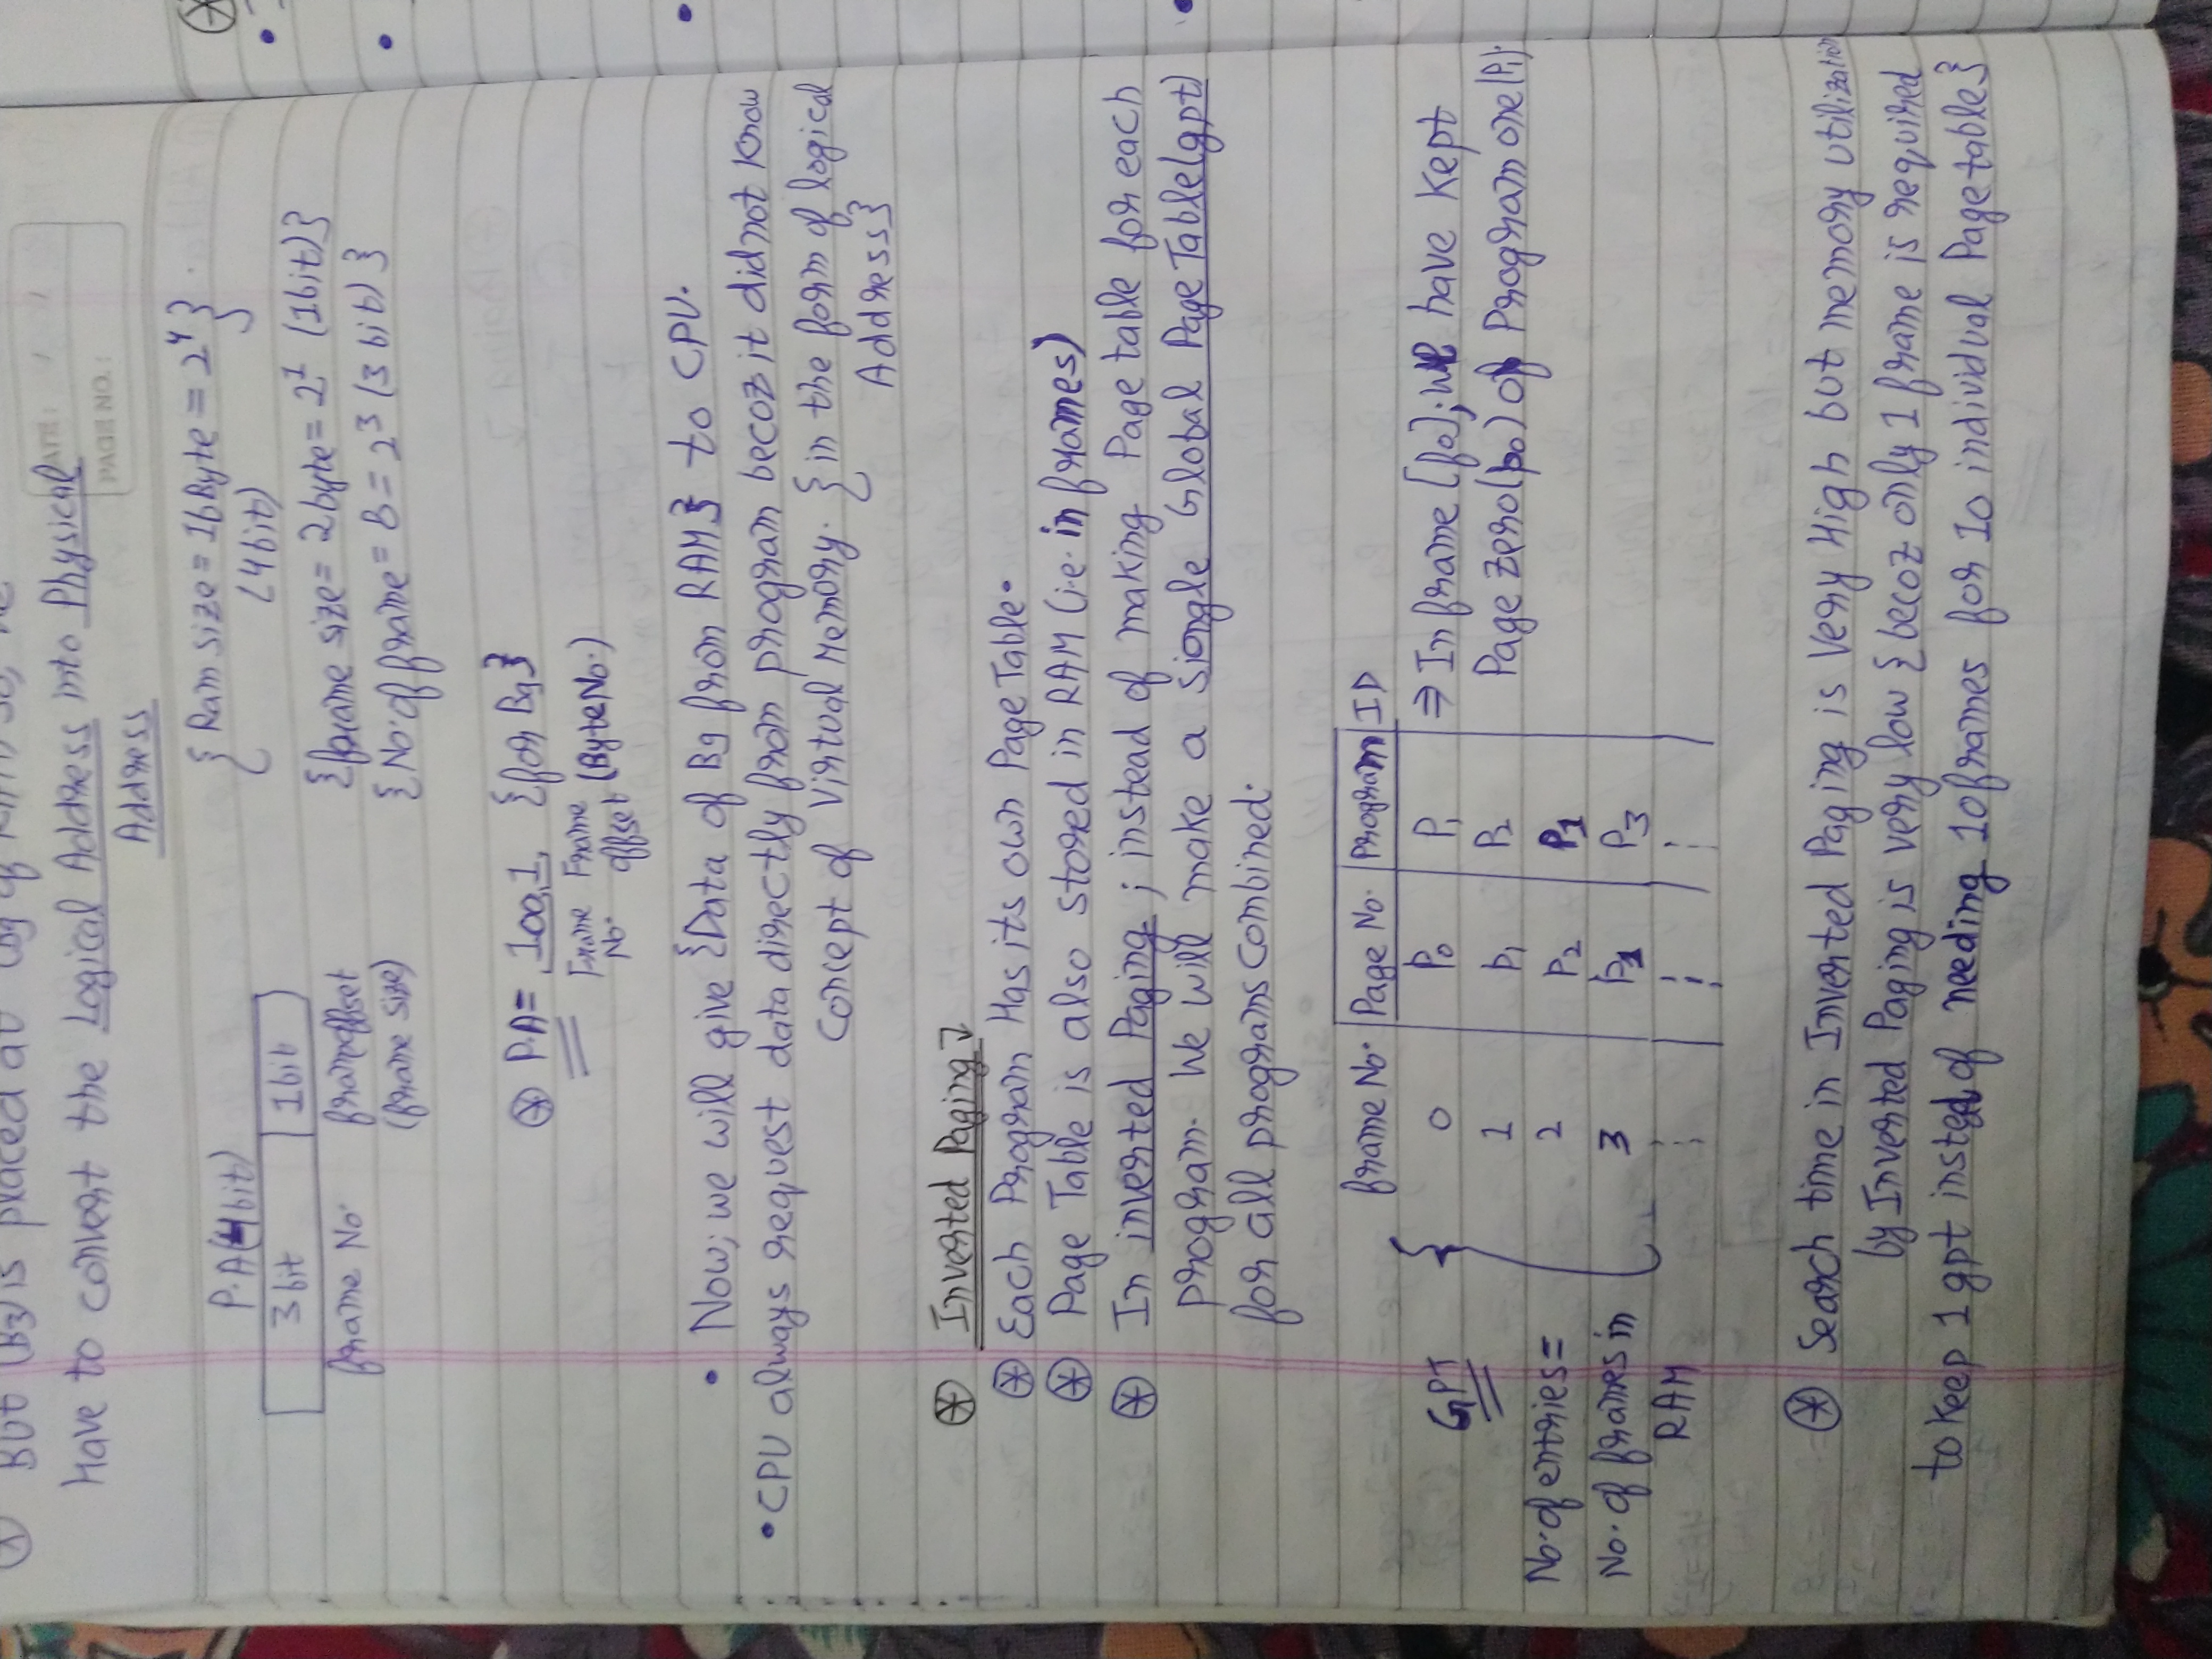 But (B3) is placed at (B9 of RAM) so, we
Have to convert the Logical Address into Physical
Address
DATE: / /
PAGE NO.:
P.A(4bit)
3bit 1bit
frame No. frameoffset
(frame size)
{Ram size = 16Byte = 2^4}
(4bit)
{frame size = 2byte = 2^1 (1bit)}
{No. of frame = 8 = 2^3 (3 bit)}
P.A = 100,1, {for B9}
Frame No. Frame offset (Byte No.)
• Now; we will give {Data of B9 from RAM} to CPU.
• CPU always request data directly from program becoz it did not know
concept of Virtual Memory. {in the form of logical
Address}
Inverted Paging ↴
Each Program Has its own Page Table.
Page Table is also stored in RAM (i.e. in frames)
In inverted Paging; instead of making Page table for each
program. We will make a siongle Global Page Table(gpt)
for all programs combined.
frame No. Page No. Program ID
GPT
No. of entries =
No. of frames in
RAM
0 P0 P1 ⇒ In frame [f0]; we have kept
1 P1 P2 Page zero(p0) of Program one (P1).
2 P2 P1
3 P1 P3
Search time in Inverted Paging is Very High but memory utilization
by Inverted Paging is very low {becoz only 1 frame is required
to keep 1 gpt insted of needing 10 frames for 10 individual Page table}